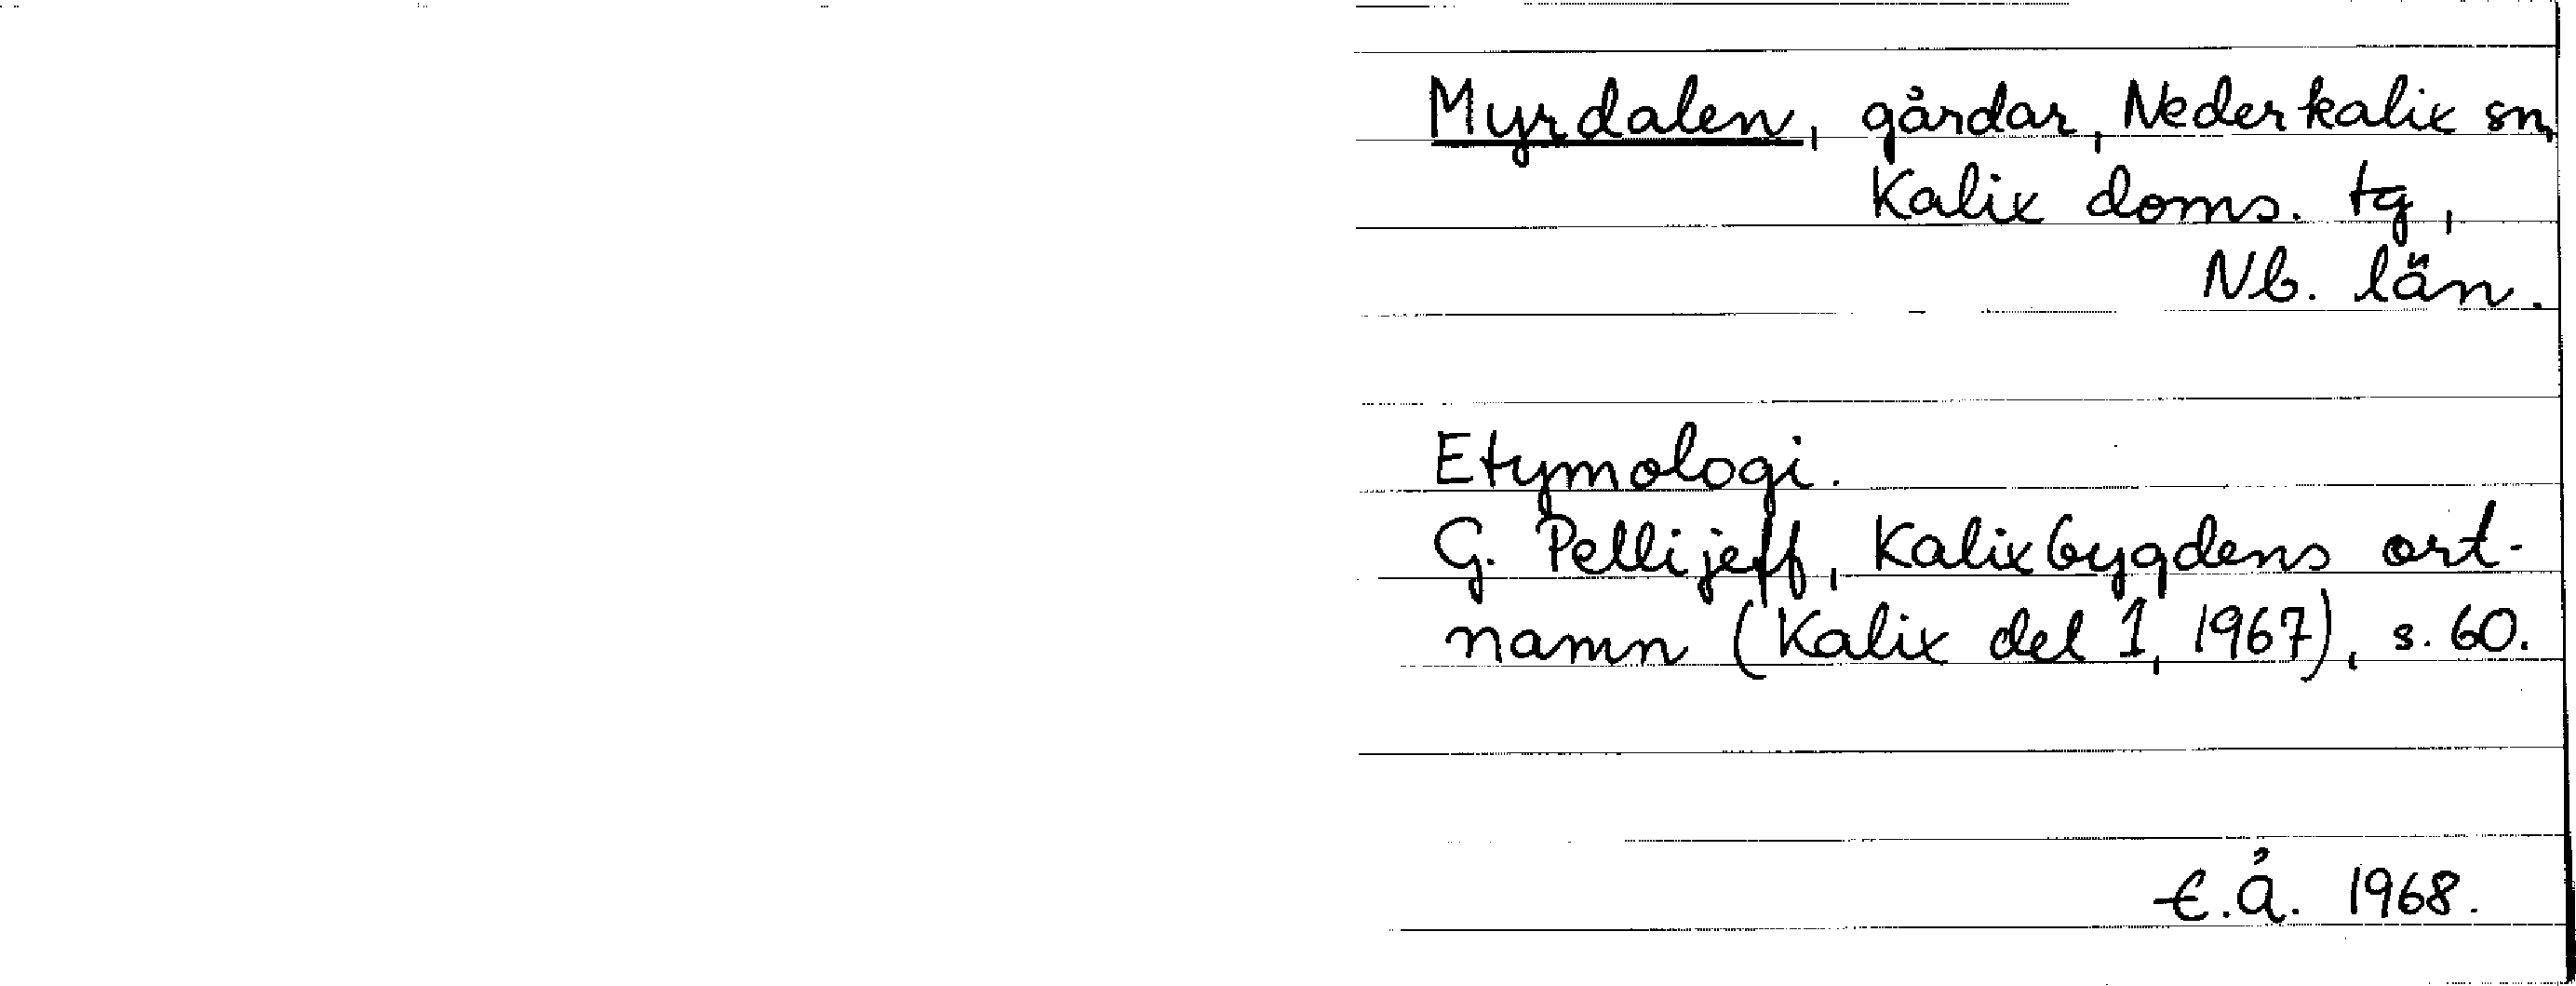 Myrdalen, gårdar, Nederkalix sn,
Kalix doms. tg,
Nb. län.
Etymologi.
G. Pellijeff, Kalixbygdens ort-
namn (Kalix del 1, 1967), s. 60.
E.Å. 1968.